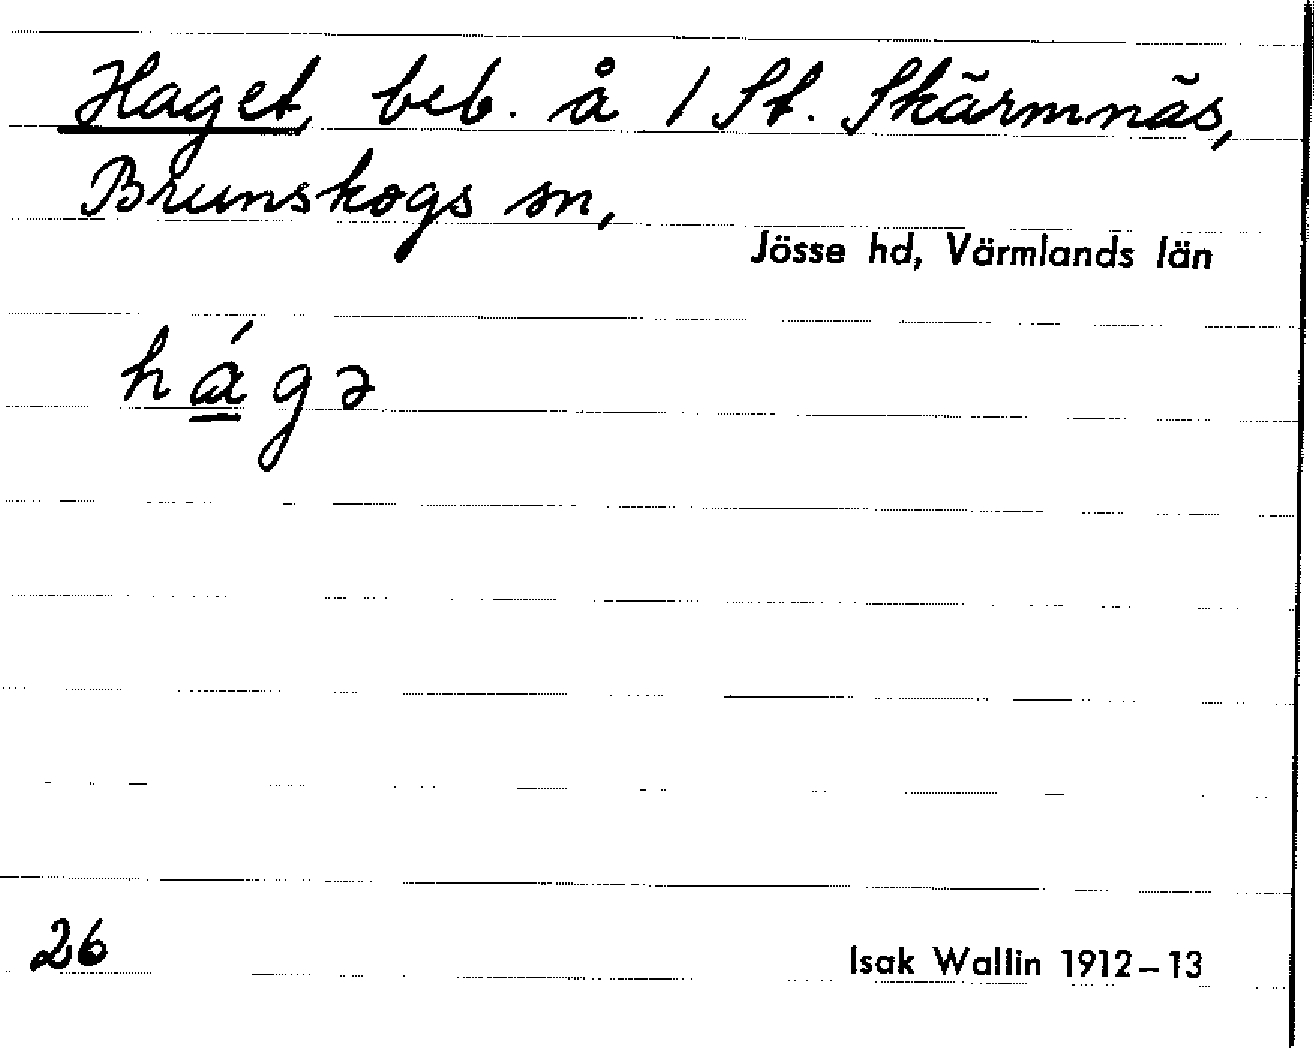 Haget, beb. å 1 St. Skärmnäs,
Brunskogs sn,
Jösse hd, Värmlands län
há̳gə
26
Isak Wallin 1912–13